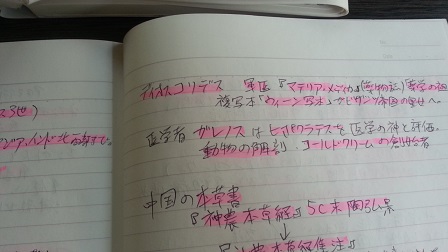 ディオスコリデス 軍医『マテリア・メディカ』(薬物誌) 薬学の祖
複写本「ウィーン写本」→ビザンツ帝国の皇女へ
医学者 ガレノスはヒポクラテスを医学の神と評価
動物の解剖、コールドクリームの創始者
中国の本草書
『神農本草経』5C末陶弘景
↓
本草経集注』